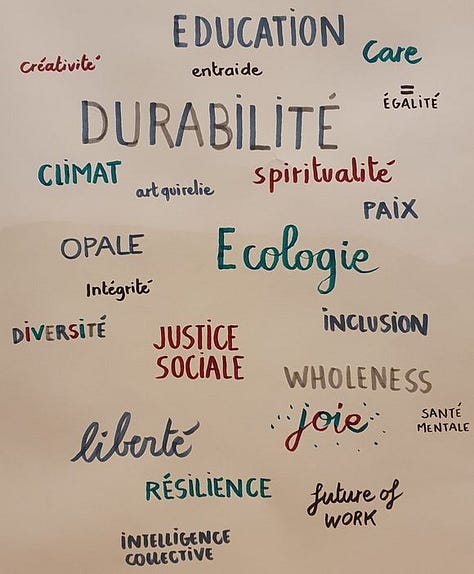 EDUCATION
Care
créativité
entraide
=
ÉGALITÉ
DURABILITÉ
CLIMAT
spiritualité
art qui relie
PAIX
OPALE
Ecologie
Intégrité
DIVERSITÉ
INCLUSION
JUSTICE
SOCIALE
WHOLENESS
joie
SANTÉ
MENTALE
liberté
RÉSILIENCE
future of
WORK
INTELLIGENCE
COLLECTIVE